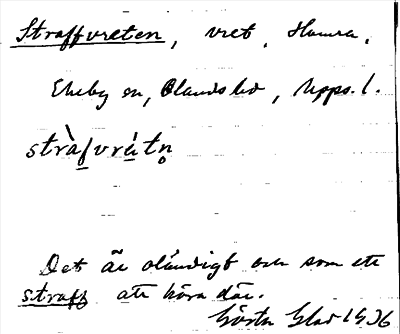 Straffvreten, vret, Hamra,
Ekeby sn, Olands hd, Upps. l.
stràfvrétn̥
Det är oländigt och som ett
straff att köra där.
Gösta Glad 1936